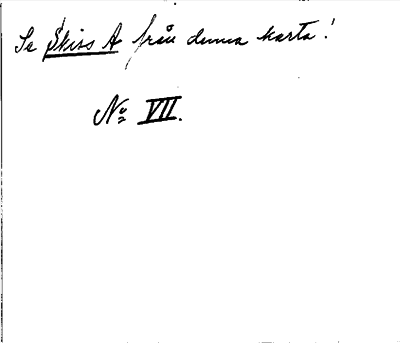 Se Skiss A från denna karta!
No VII.